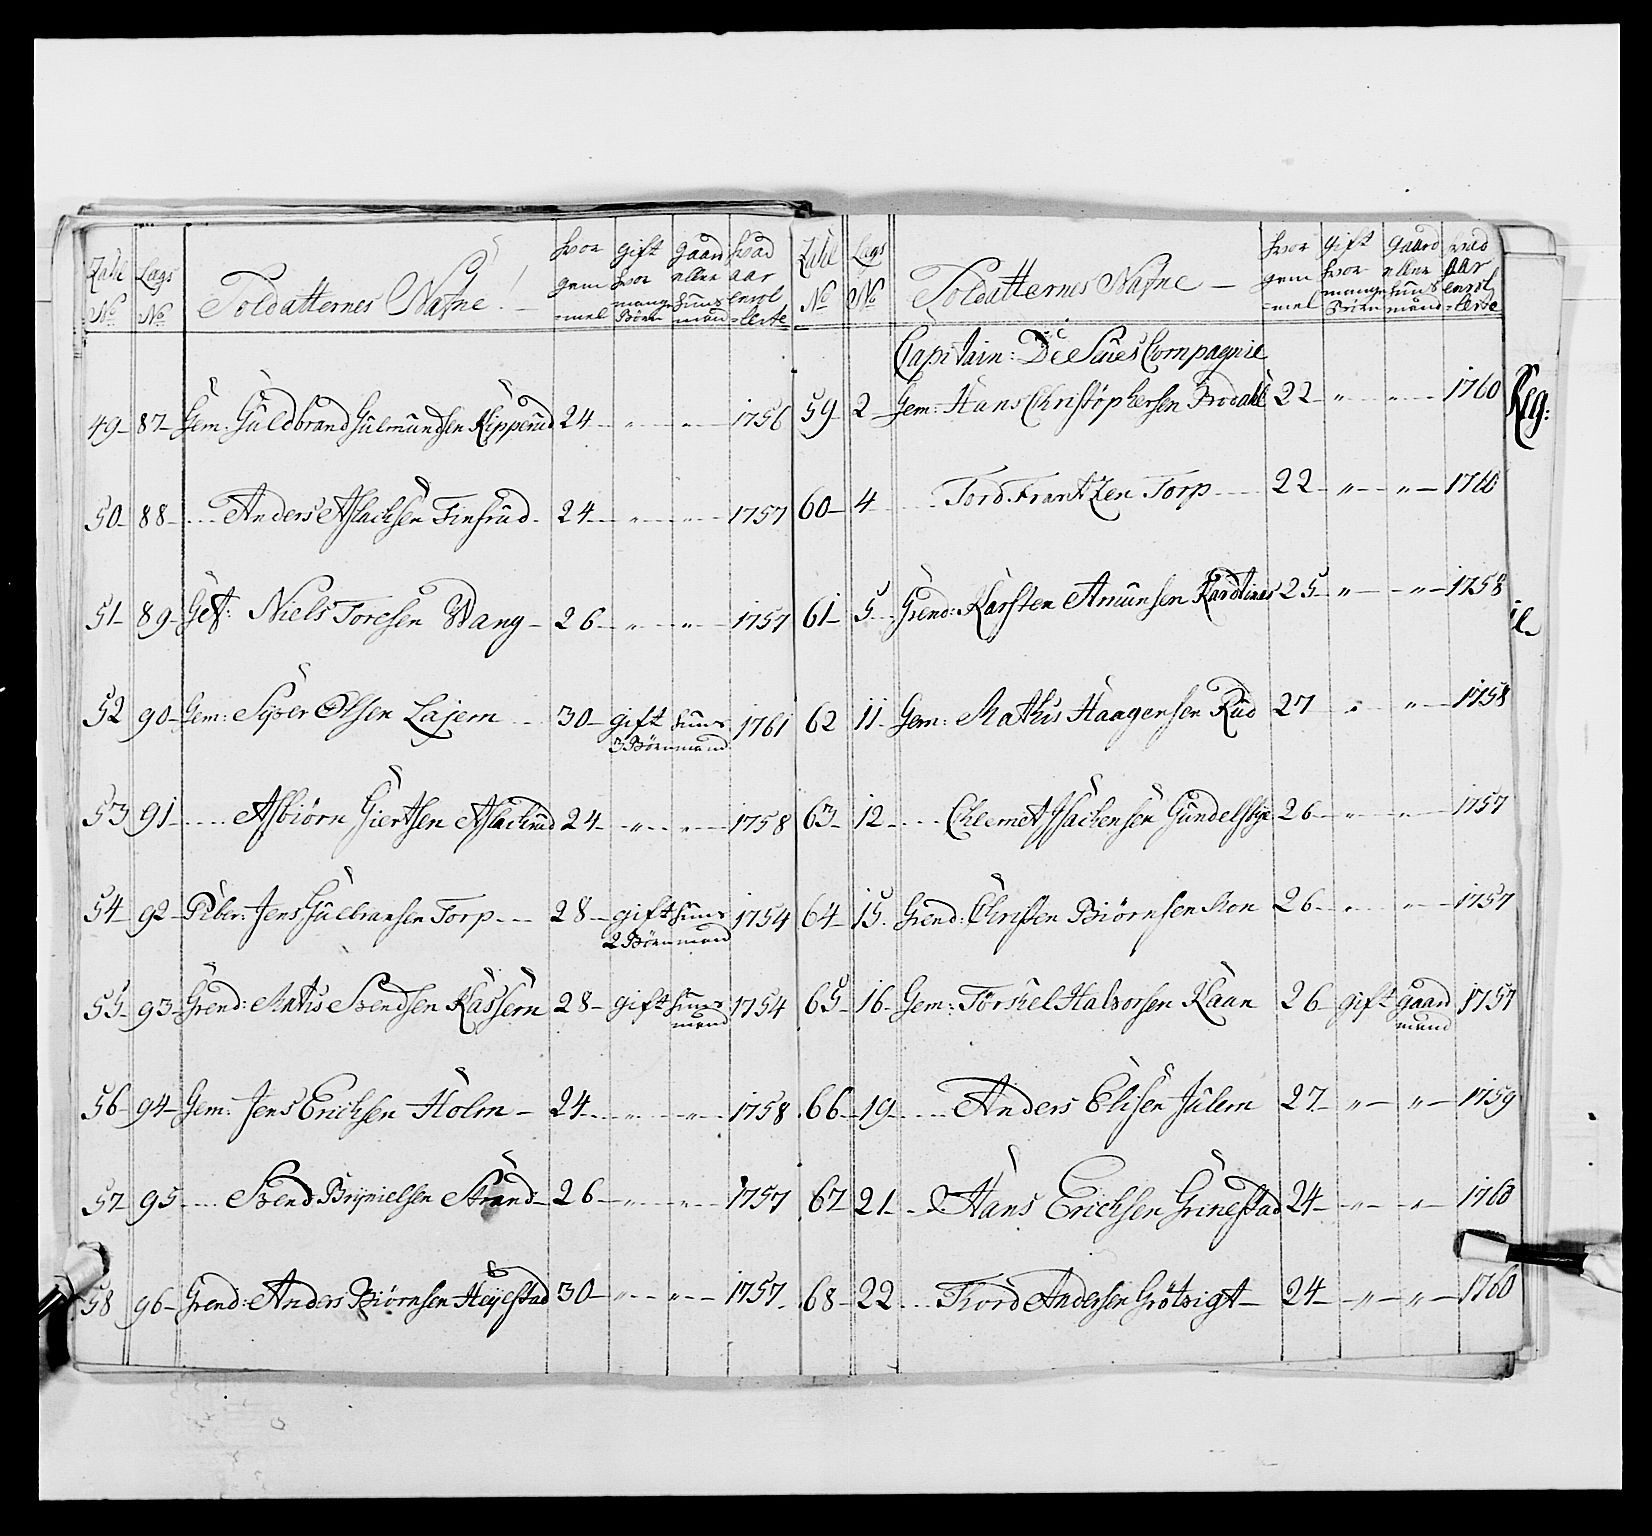 Zahl No Lægs No Soldatternes Nafne hvor gammel gift hvor mange Börn gaard eller huus mand hvad aar enrol=lerte
49 87 Gem: Guldbrand Gulmundsen Kipperud 24 " " 1756
50 88 Anders Aslachsen Finsrud 24 " " 1757
51 89 Gef: Niels Toresen Wang 26 " " 1757
52 90 Gem: Syver Olsen Lajem 30 gift 3 Börn huus mand 1761
53 91 Asbiörn Giertsen Aslachrud 24 " " 1758
54 92 Pibr: Jens Gulbransen Torp 28 gift 2 Börn huus mand 1754
55 93 Grend: Mathis Svendsen Kassern 28 gift huus mand 1754
56 94 Gem: Jens Erichsen Holm 24 " " 1758
57 95 Svend Brynielsen Strand 26 " " 1757
58 96 Grend: Anders Biörnsen Heyestad 30 " " 1757
Zahl No Lægs No Soldatternes Nafne hvor gammel gift hvor mange Börn gaard eller huus mand hvad aar enrol=lerte
Capitain: De Seues Compagnie
59 2 Gem: Hans Christophersen 22 " " 1760
60 4 Tord Frantzen Torp 22 " " 1760
61 5 Grend: Karsten Amunsen 25 " " 1758
62 11 Gem: Mathis Haagensen Rud 27 " " 1758
63 12 Clemet Isachsen Gundelsbye 26 " " 1757
64 15 Grend: Christen Biörnsen Mon 26 " " 1757
65 16 Gem: Törkel Halvorsen Klaan 26 gift gaard mand 1757
66 19 Anders Elisen Julem 27 " " 1759
67 21 Hans Erichsen Grinestad 24 " " 1760
68 22 Thord Andersen Grötvigt 24 " " 1760
Reg: